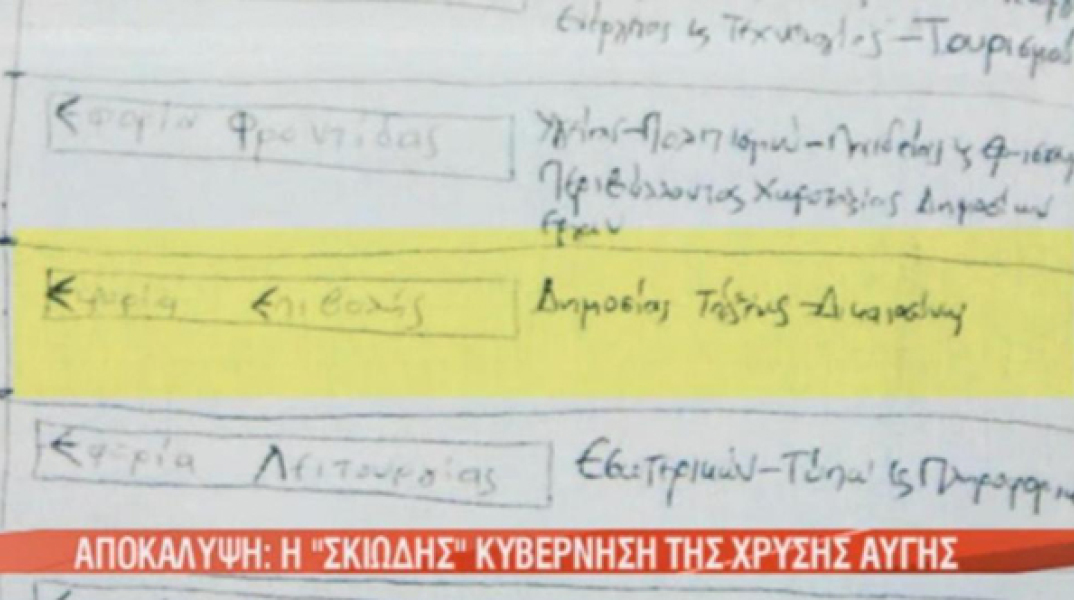 Ενέργειας & Τεχνολογίας - Τουρισμού
Εφορία Φροντίδας
Υγείας - Πολιτισμού - Παιδείας &
Περιβάλλοντος Χωροταξίας Δημοσίων
Έργων
Εφορία Επιβολής
Δημοσίας Τάξης - Δικαιοσύνης
Εφορία Λειτουργίας
Εσωτερικών - Τύπου &
ΑΠΟΚΑΛΥΨΗ: Η "ΣΚΙΩΔΗΣ" ΚΥΒΕΡΝΗΣΗ ΤΗΣ ΧΡΥΣΗΣ ΑΥΓΗΣ